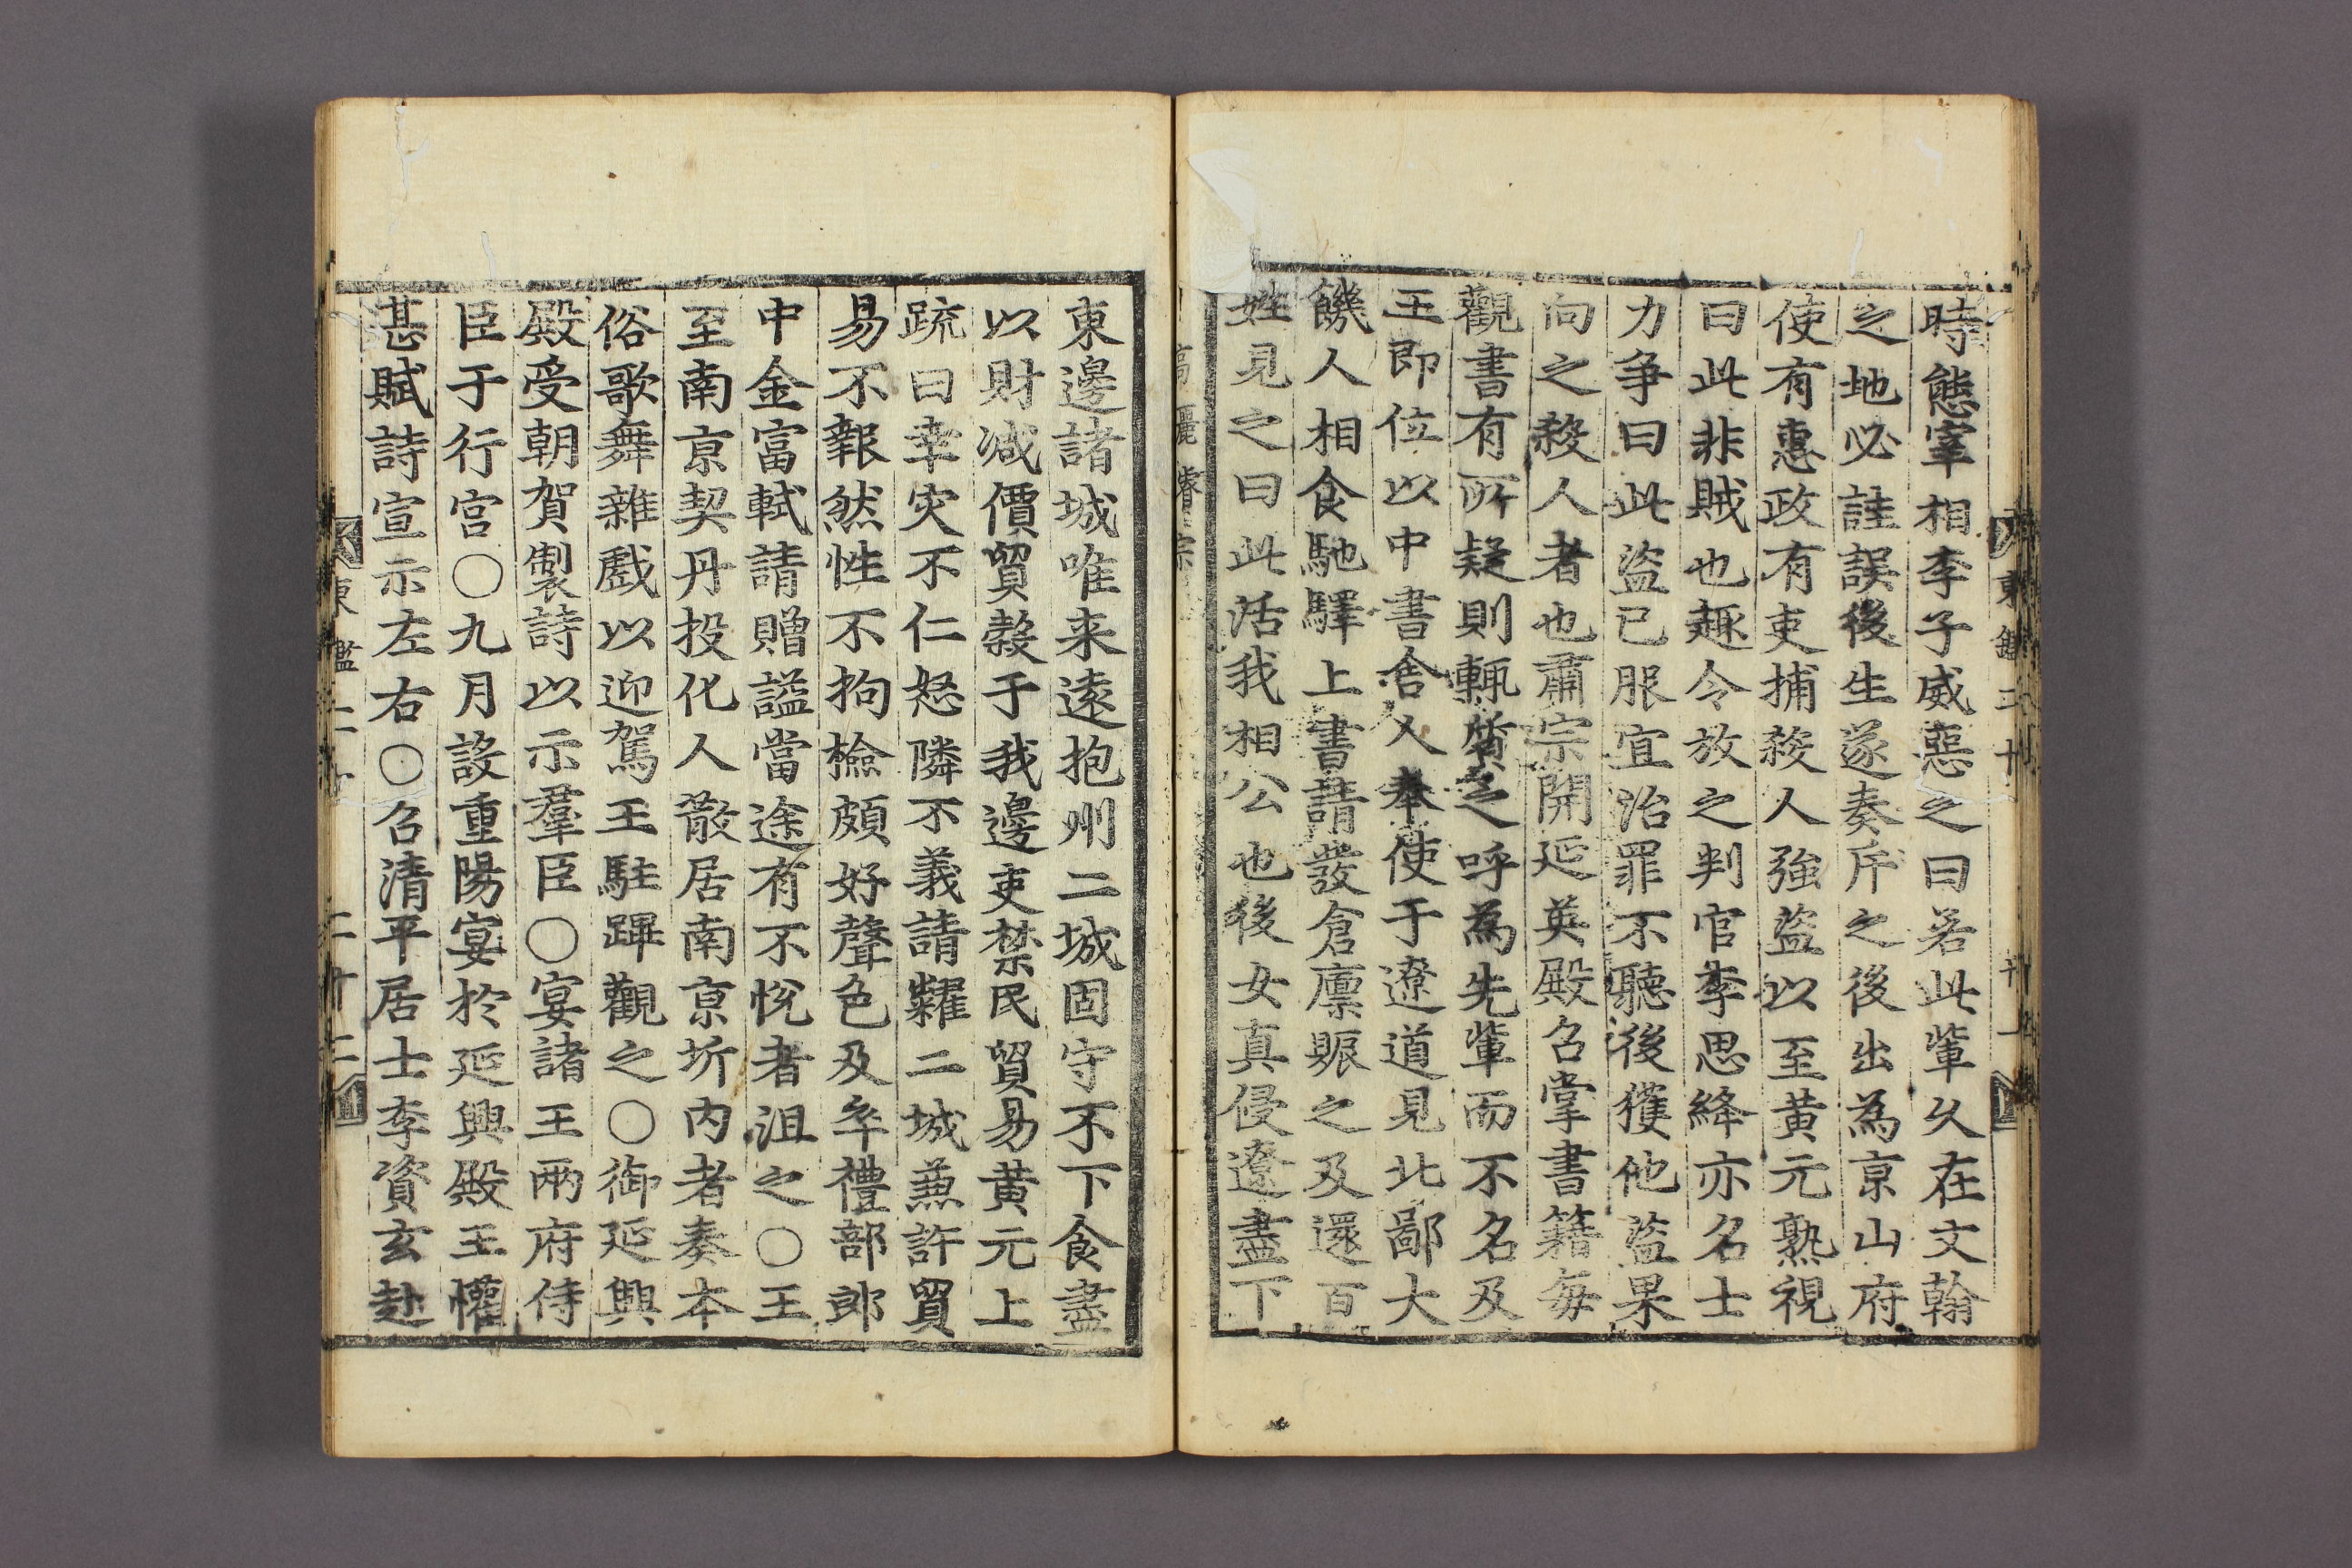 時態宰相李子威惡之曰若此輩久在文翰
之地必詿誤後生遂奏斥之後出為京山府
使有惠政有吏捕殺人強盜以至黃元熟視
曰此非賊也趣令放之判官李思絳亦名士
力爭曰此盜已服宜治罪不聽後獲他盜果
向之殺人者也肅宗開延英殿召掌書籍每
觀書有所疑則輒質之呼為先輩而不名及
王即位以中書舍人奉使于遼道見北鄙大
饑人相食馳驛上書請發倉廩賑之及還百
姓見之曰此活我相公也後女真侵遼盡下
高麗睿宗
東邊諸城唯来遠抱州二城固守不下食盡
以財減價貿穀于我邊吏禁民貿易黃元上
疏曰幸灾不仁怒隣不義請糶二城兼許貿
易不報然性不拘檢頗好聲色及卒禮部郎
中金富軾請贈謚當途有不悅者沮之〇王
至南京契丹投化人散居南京圻內者奏本
俗歌舞雜戲以迎駕王駐蹕觀之〇御延興
殿受朝賀製詩以示羣臣〇宴諸王兩府侍
臣于行宮〇九月設重陽宴於延興殿王懽
甚賦詩宣示左右〇召清平居士李資玄赴
東鑑二十 二十二